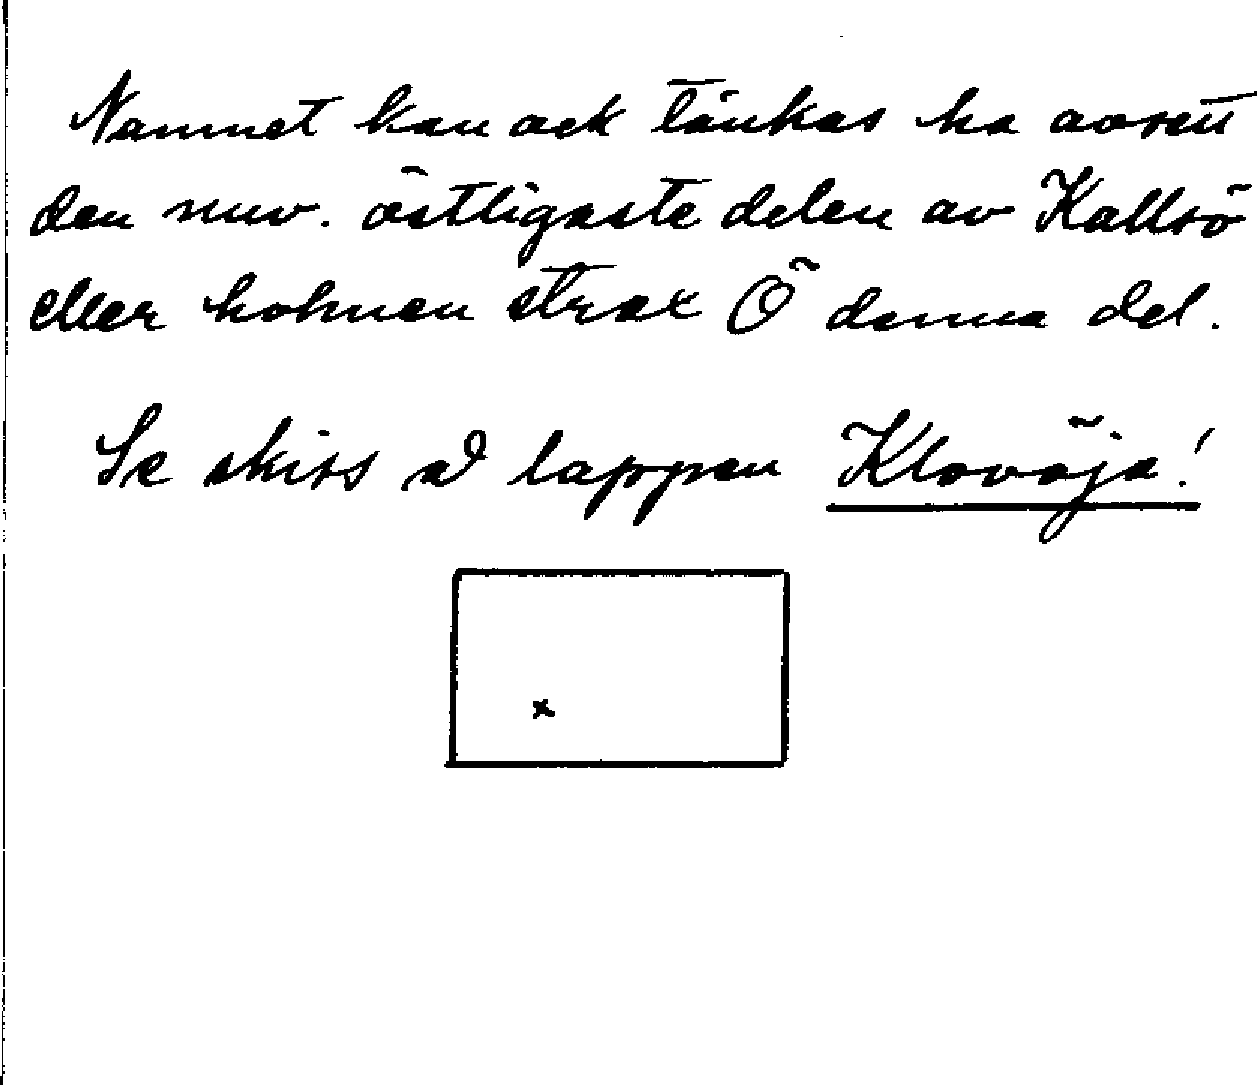 Namnet kan ock tänkas ha avsett
den nuv. östligaste delen av Kallsö
eller holmen strax Ö denna del.
Se skiss å lappen Klovöja!
x